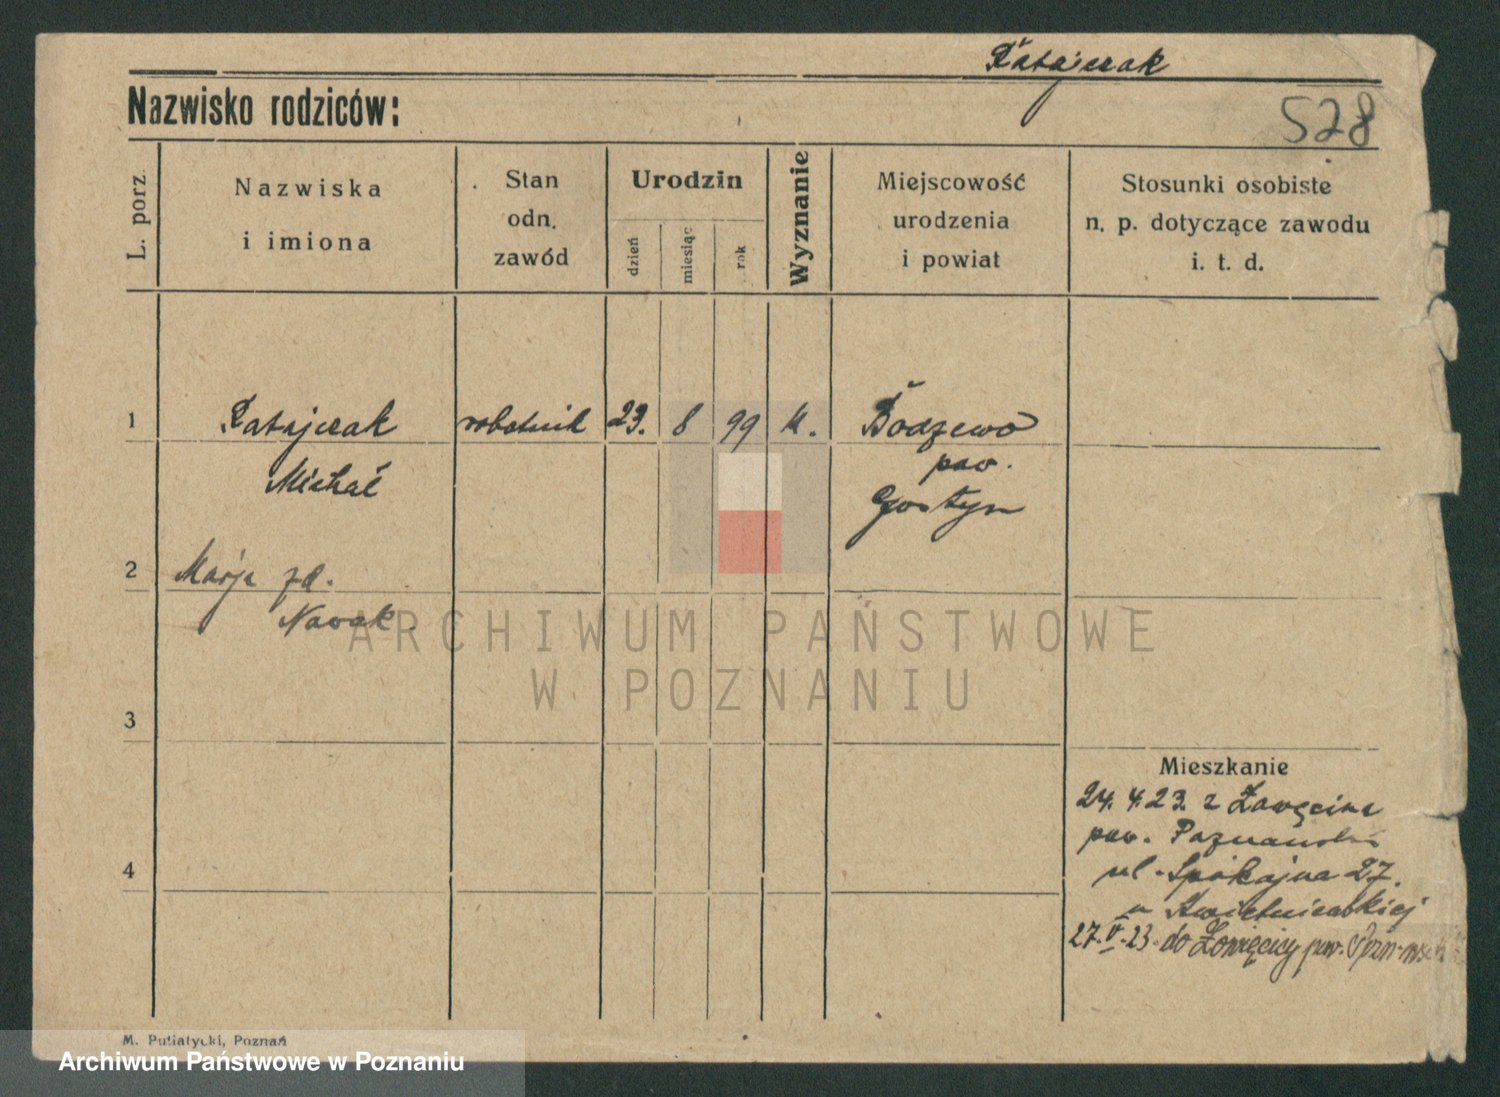 Ratajczak
Nazwisko rodziców:
528
L. porz.
Nazwiska
i imiona
Stan
odn.
zawód
Urodzin
dzień
miesiąc
rok
Wyznanie
Miejscowość
urodzenia
i powiat
Stosunki osobiste
n. p. dotyczące zawodu
i. t. d.
1 Ratajczak robotnik 23. 8 99 k. Bodzewo
pow.
Michał Gostyn
2 Marja zd.
Nowak
ARCHIWUM PAŃSTWOWE
W POZNANIU
3
Mieszkanie
24. 4. 23. z
pow.
4 ul. Spokojna 27.
u Kwietniewskiej
27.V.23. do pow.
M. Putiatycki, Poznań
Archiwum Państwowe w Poznaniu